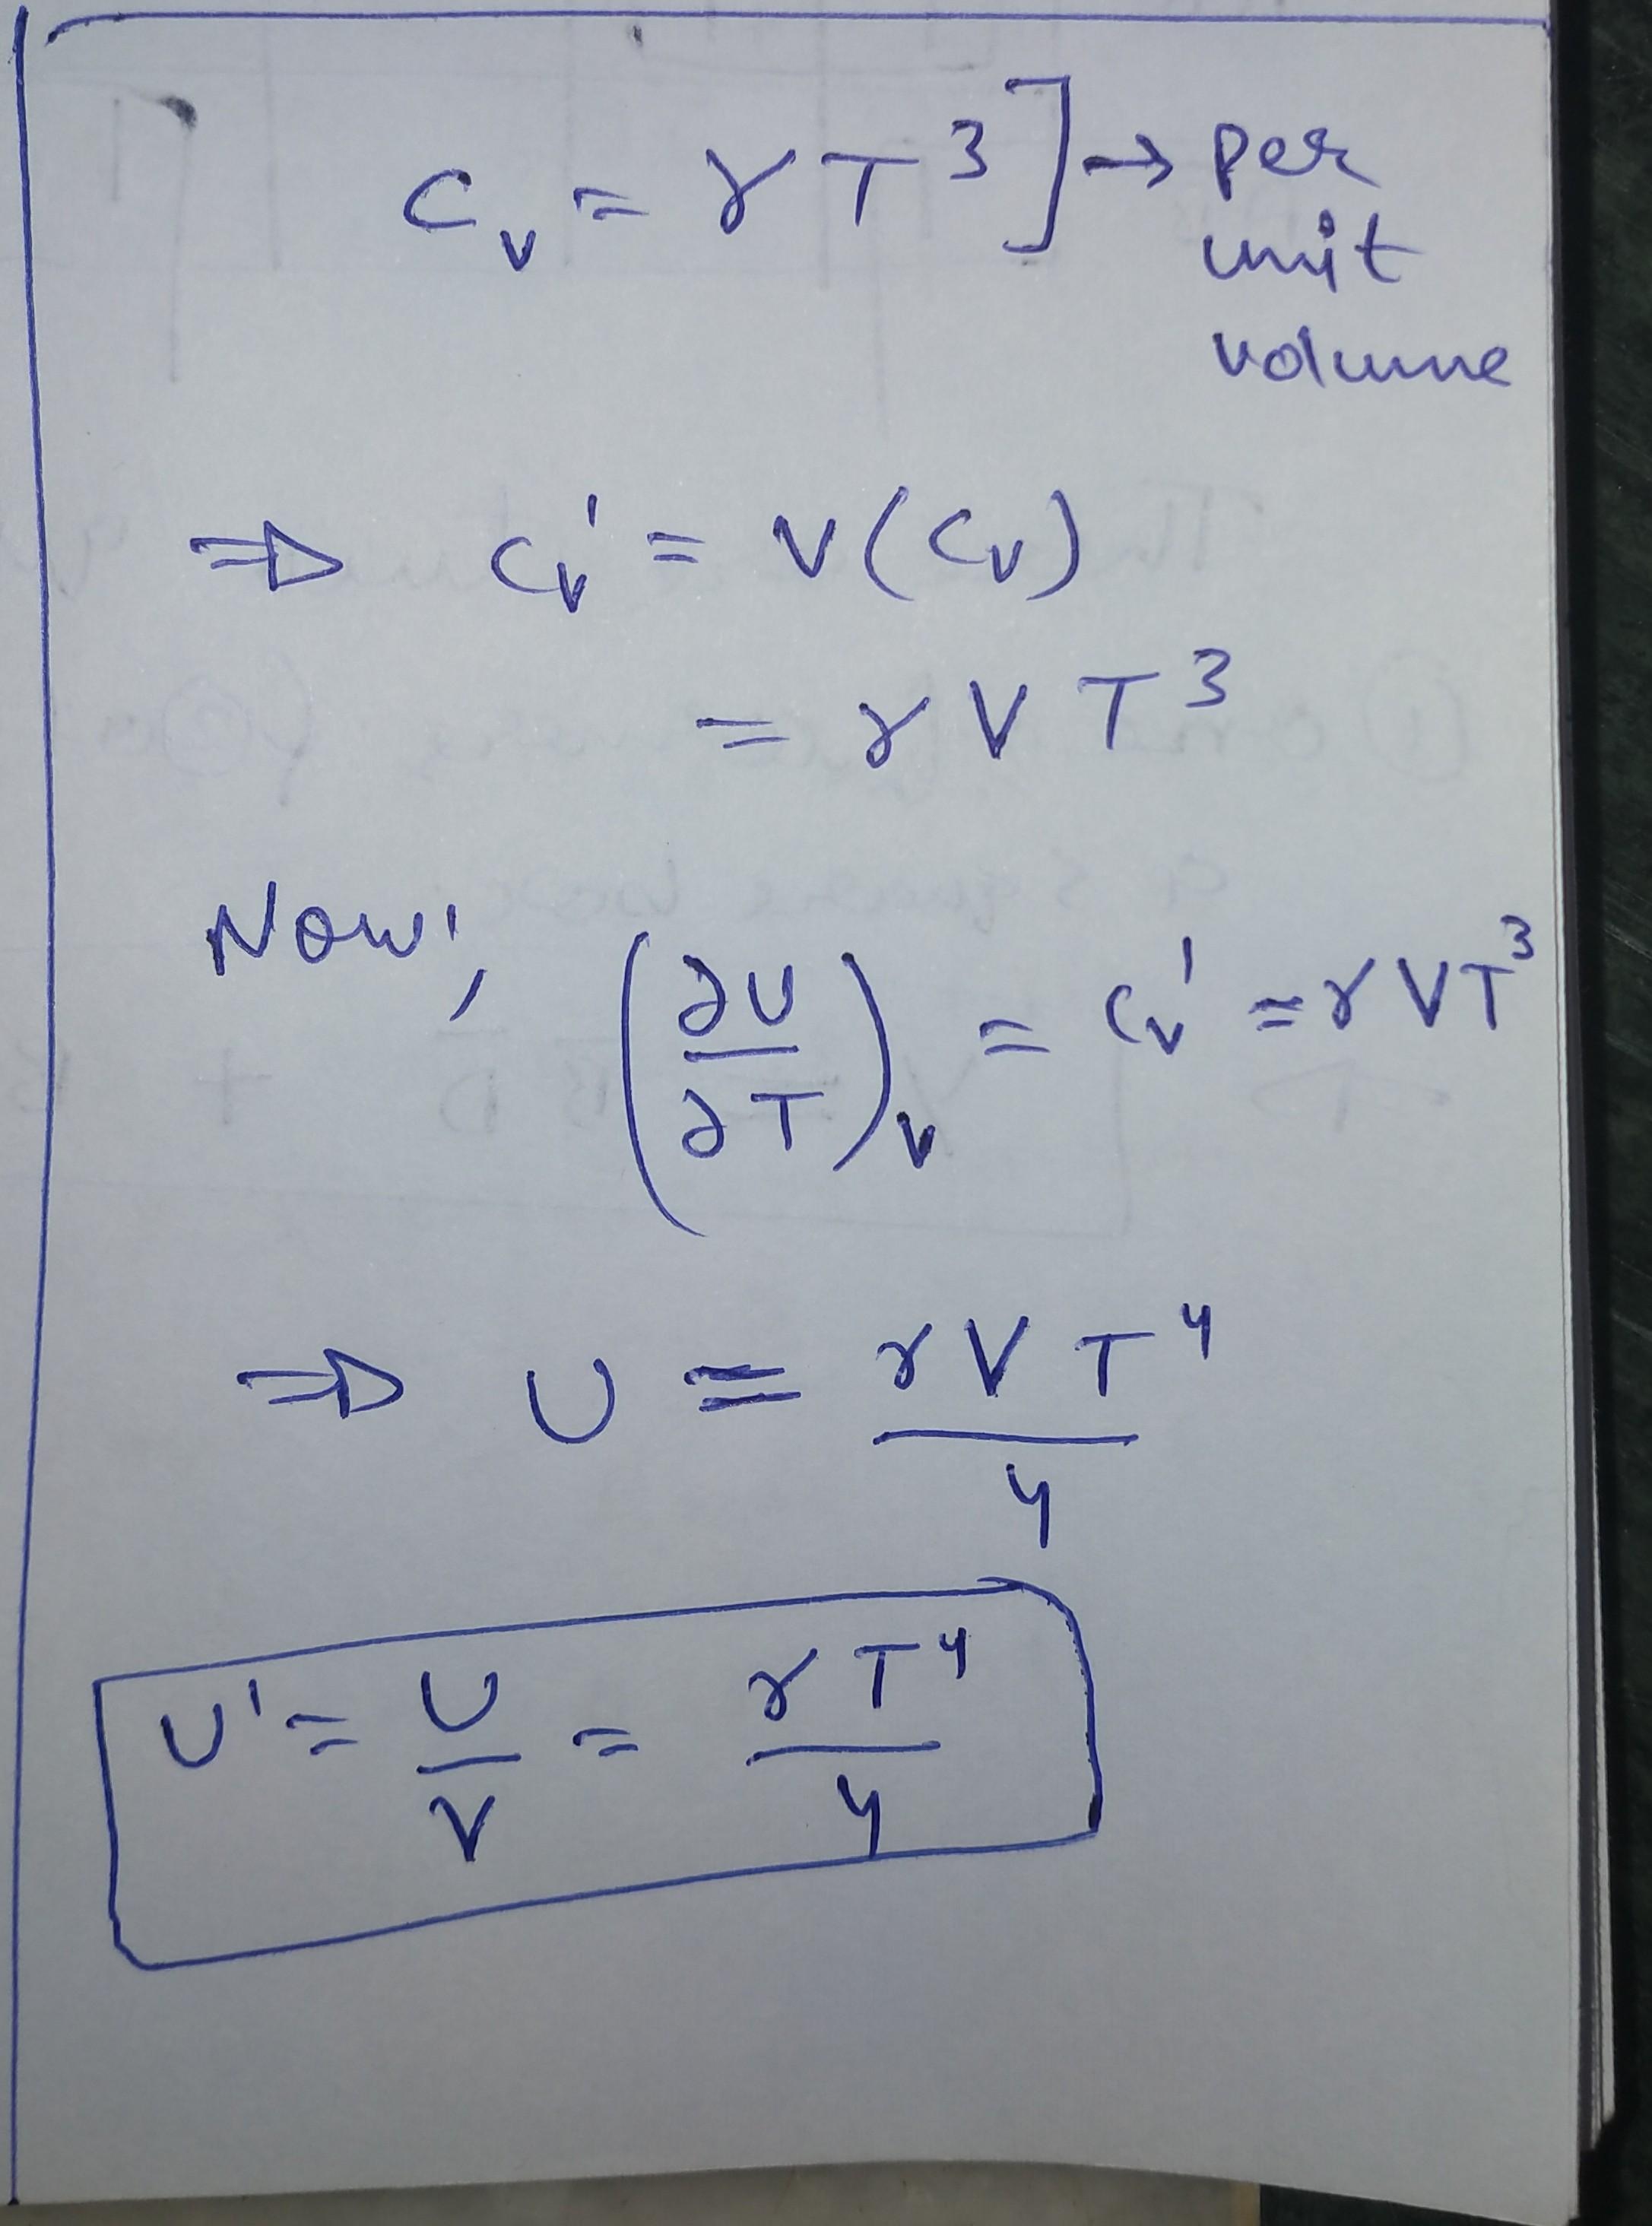 C_v = γ T^3 ] → per
unit
volume
⇒ C_v' = V (C_v)
= γ V T^3
Now, (∂U/∂T)_v = C_v' = γ V T^3
⇒ U = γ V T^4 / 4
U' = U/V = γ T^4 / 4